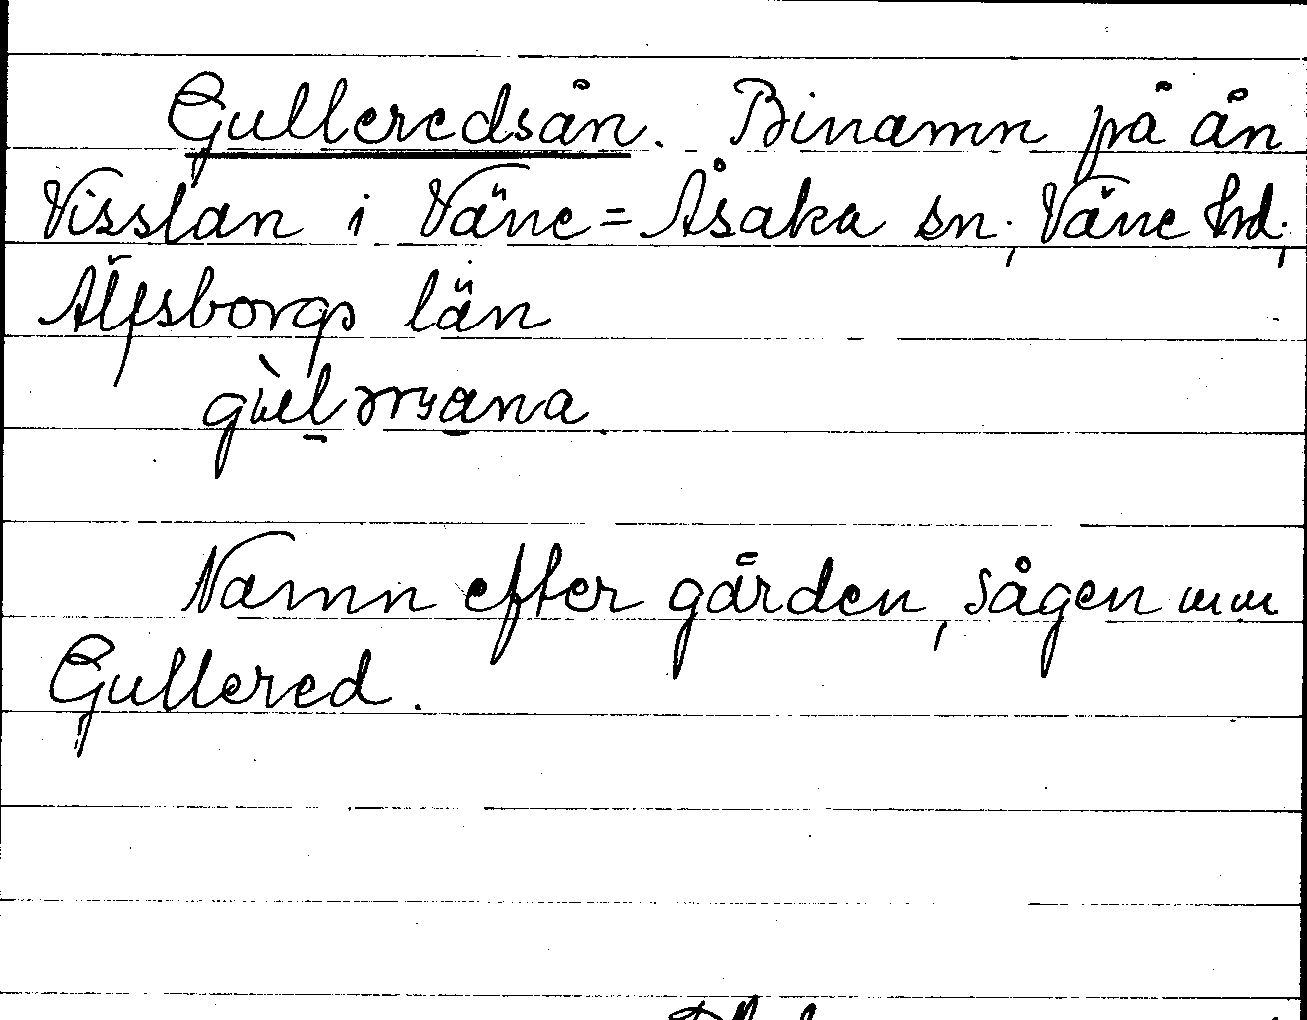 Gulleredsån. Binamn på ån
Visslan i Väne=Åsaka sn; Väne hrd;
Älfsborgs län
Namn efter gården, sågen mm
Gullered.